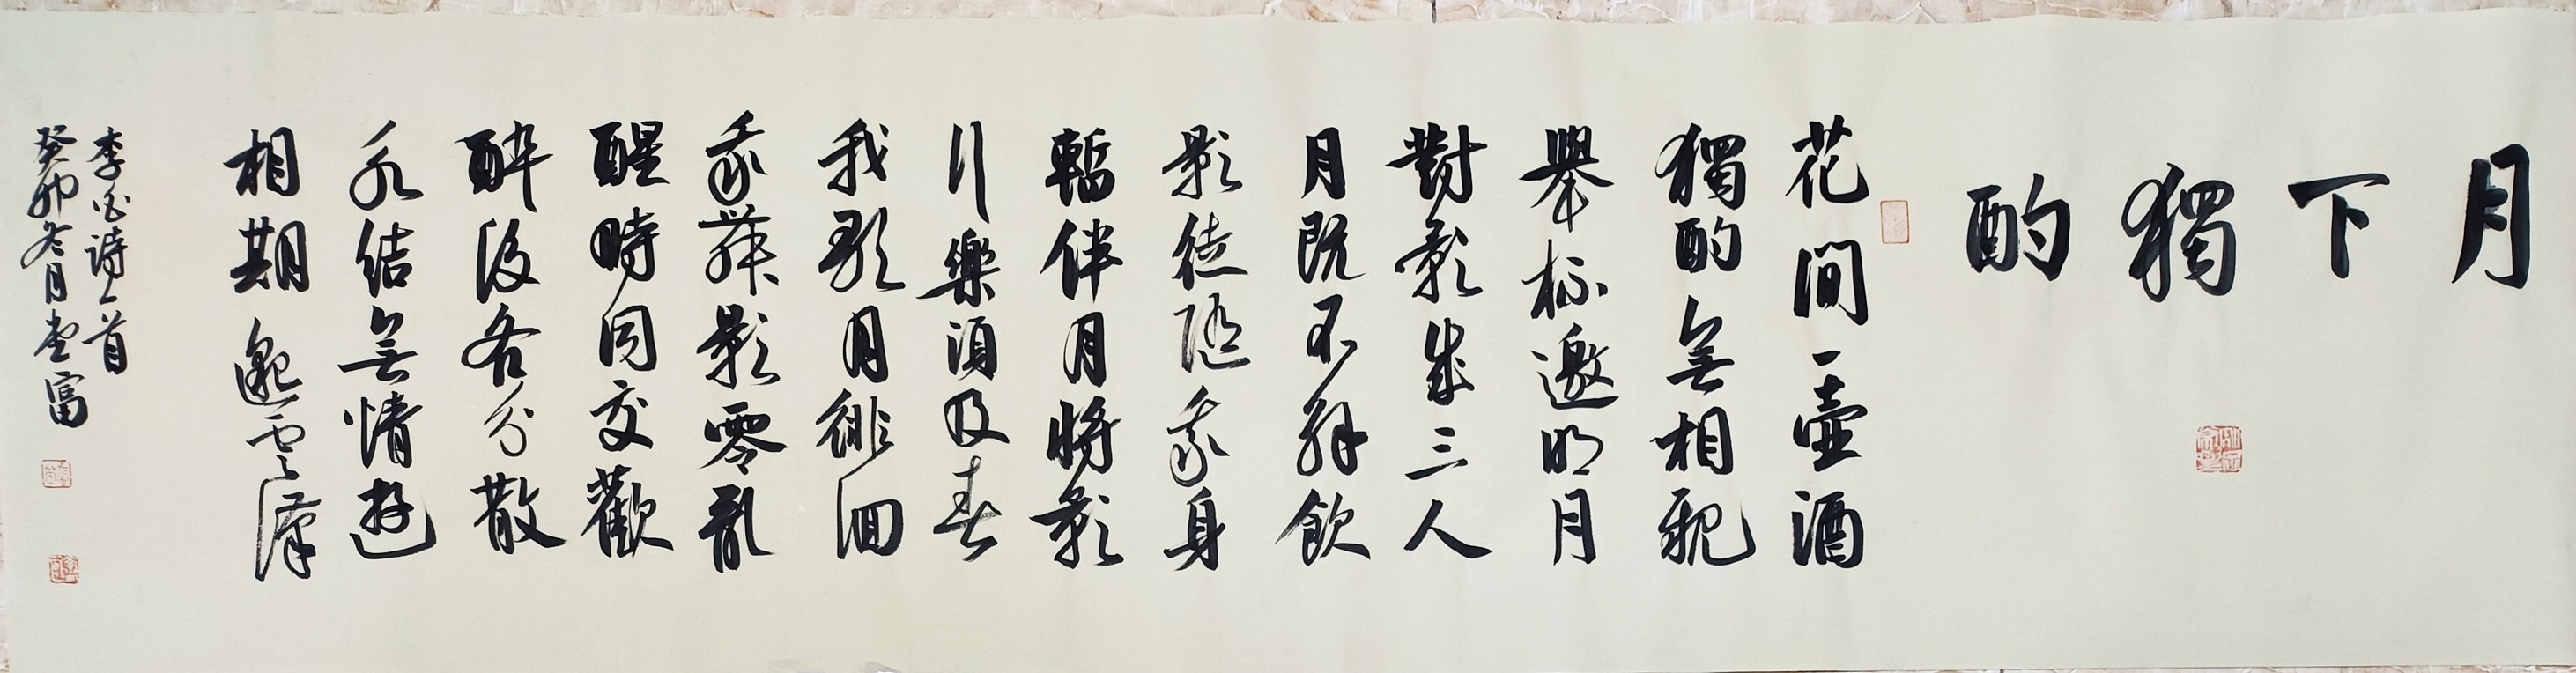 月下獨酌
花間一壺酒
獨酌無相親
舉杯邀明月
對影成三人
月既不解飲
影徒隨我身
暫伴月將影
行樂須及春
我歌月徘徊
我舞影零亂
醒時同交歡
醉後各分散
永結無情遊
相期邈雲漢
李白詩一首
癸卯冬月 富